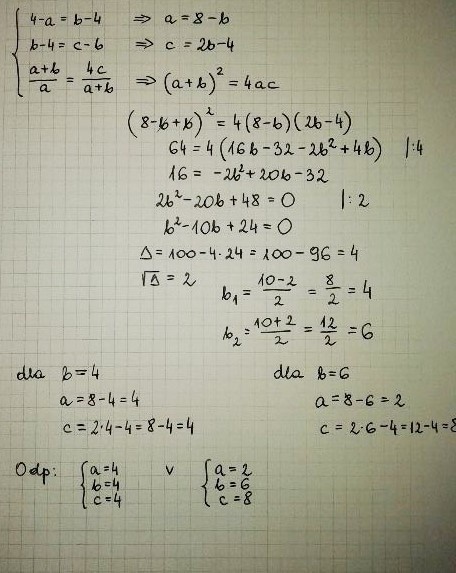 4-a = b-4 ⇒ a = 8-b
b-4 = c-b ⇒ c = 2b-4
(a+b)/a = 4c/(a+b) ⇒ (a+b)² = 4ac
(8-b+b)² = 4(8-b)(2b-4)
64 = 4(16b-32-2b²+4b) |:4
16 = -2b²+20b-32
2b²-20b+48 = 0 |:2
b²-10b+24 = 0
Δ = 100-4·24 = 100-96 = 4
√Δ = 2
b₁ = (10-2)/2 = 8/2 = 4
b₂ = (10+2)/2 = 12/2 = 6
dla b=4 dla b=6
a = 8-4 = 4 a = 8-6 = 2
c = 2·4-4 = 8-4 = 4 c = 2·6-4 = 12-4 = 8
Odp: { a=4 v { a=2
b=4 b=6
c=4 c=8